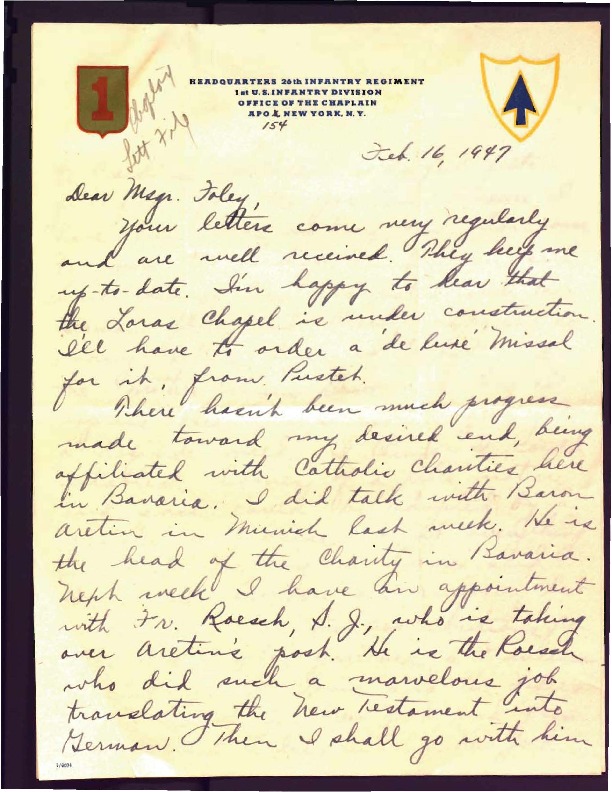 1
HEADQUARTERS 26th INFANTRY REGIMENT
1st U.S. INFANTRY DIVISION
OFFICE OF THE CHAPLAIN
APO 1, NEW YORK, N.Y.
154
Feb. 16, 1947
Dear Msgr. Foley,
Your letters come very regularly
and are well received. They keep me
up-to-date. I'm happy to hear that
the Loras Chapel is under construction.
I'll have to order a 'de luxe' Missal
for it, from Pustet.
There hasn't been much progress
made toward my desired end, being
affiliated with Catholic Charities here
in Bavaria. I did talk with Baron
Aretin in Munich last week. He is
the head of the Charity in Bavaria.
Next week I have an appointment
with Fr. Roesch, S. J., who is taking
over Aretin's post. He is the Roesch
who did such a marvelous job
translating the New Testament into
German. Then I shall go with him